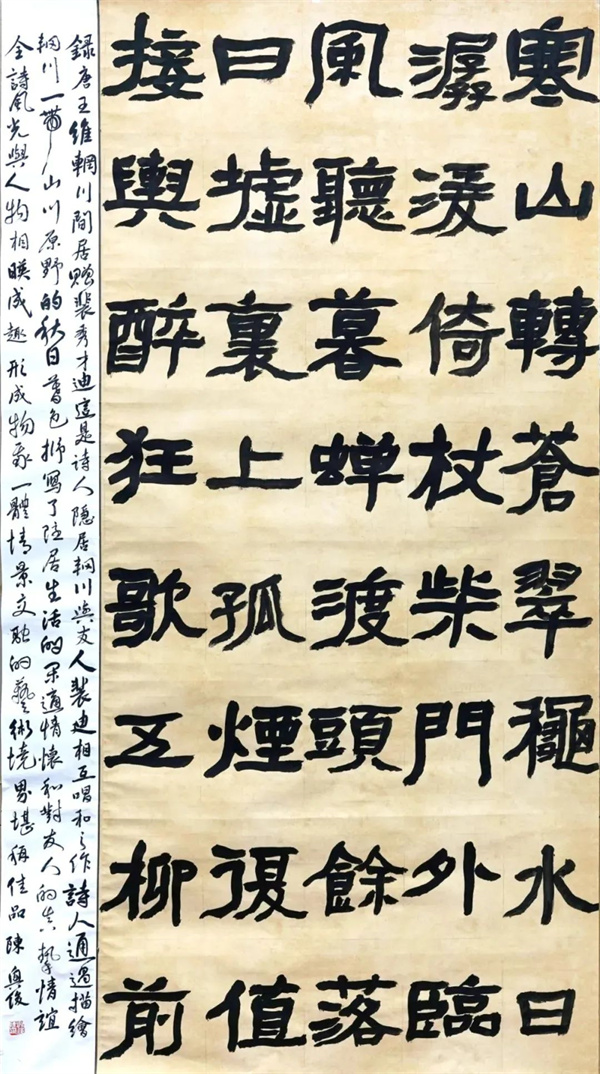 寒山轉蒼翠龝水日
潺湲倚杖柴門外臨
風聽暮蝉渡頭餘落
日墟裏上孤煙復值
接輿醉狂歌五柳前
錄唐王維輞川閒居贈裴秀才迪這是詩人隱居輞川與友人裴迪相互唱和之作詩人通過描繪
輞川一帶山川原野的秋日暮色抒寫了隱居生活的閑適情懷和對友人的真摯情誼
全詩風光與人物相映成趣形成物我一體情景交融的藝術境界堪稱佳品陳興俊